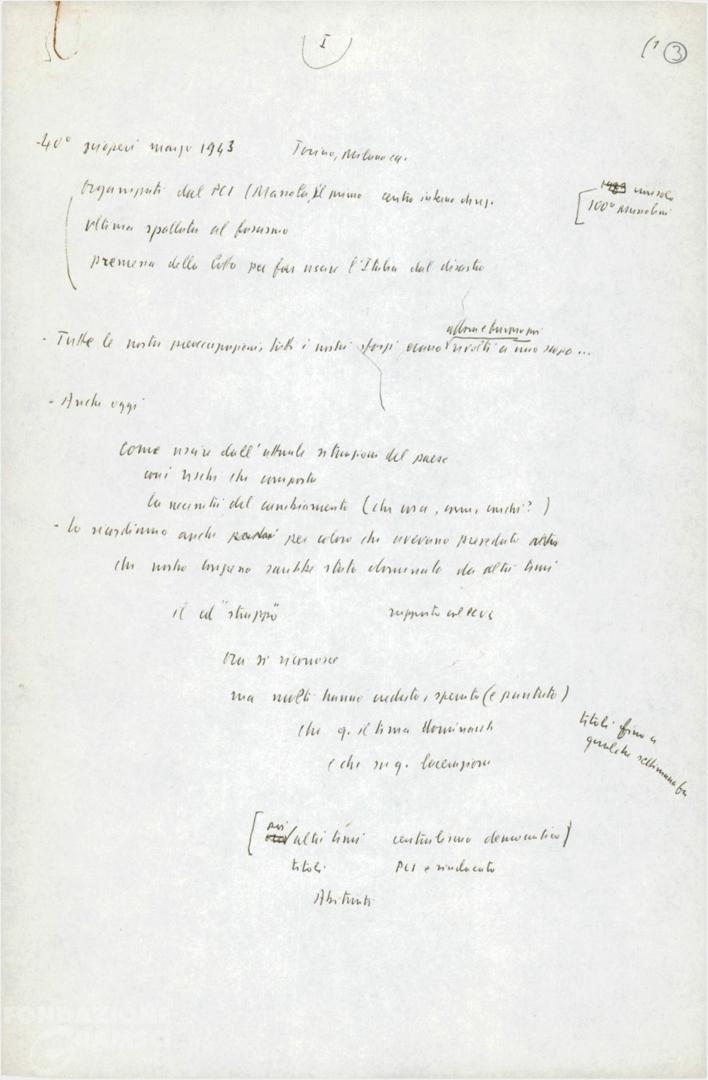 I
(1 3
- 40° scioperi marzo 1943 Torino, Milano ecc.
Organizzati dal PCI (Massola, il primo centro interno
100° Mussolini
ultima spallata al fascismo
premessa della lotta per far uscire l'Italia dal disastro
- Tutte le nostre preoccupazioni, tutti i nostri sforzi erano rivolti a uno scopo...
- Anche oggi
come uscire dall'attuale situazione del paese
con i rischi che comporta
la necessità del cambiamento (che cosa, come, anche?)
- Lo ricordiamo anche per coloro che avevano preveduto
che nostro congresso sarebbe stato dominato da altri temi
il cd "strappo" rapporto
Ora si riconosce
ma molti hanno creduto, sperato (e puntato)
che q. il tema dominante
e che su q. lacerazioni
titoli fino a
qualche settimana fa
[ poi altri temi centralismo democratico
titoli PCI e sindacato
FONDAZIONE
GRAMSCI